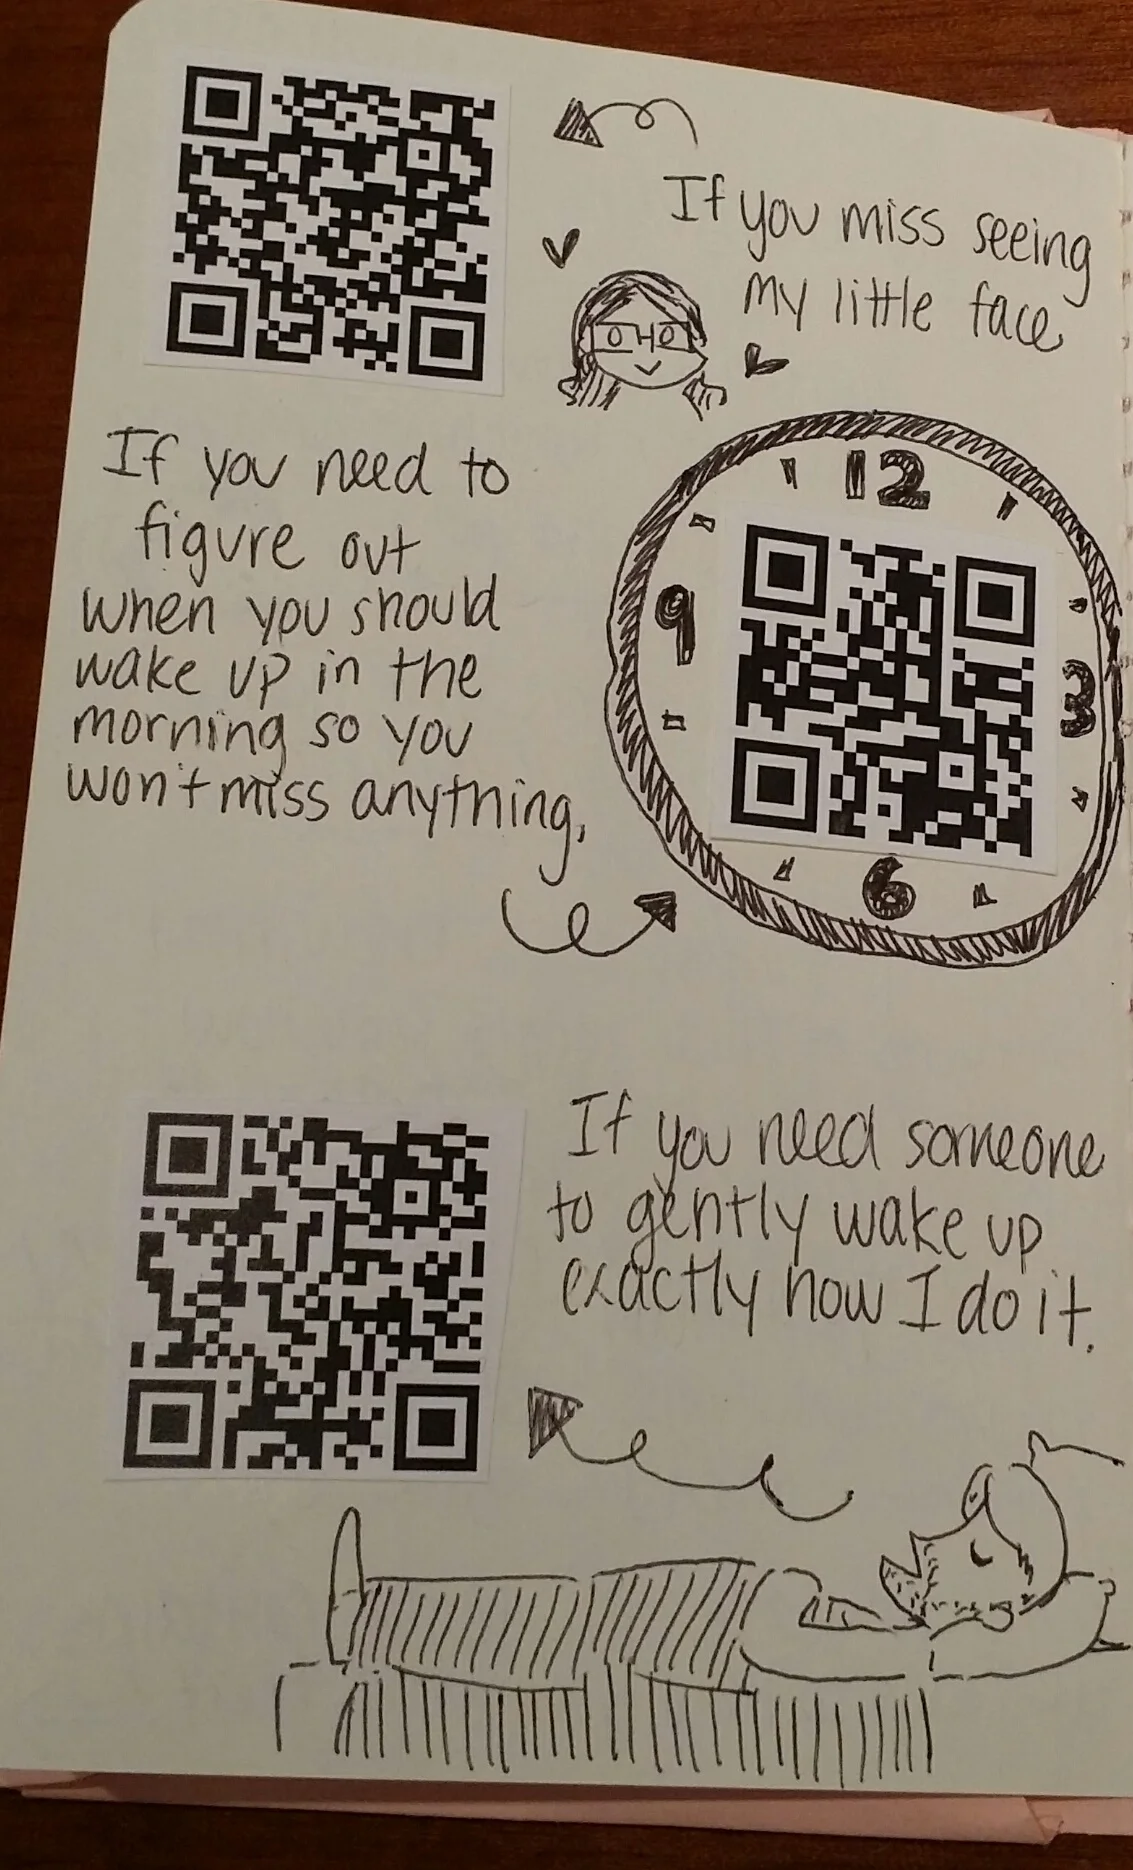 If you miss seeing
my little face
If you need to
figure out
when you should
wake up in the
morning so you
won't miss anything.
12
9
3
6
If you need someone
to gently wake up
exactly how I do it.